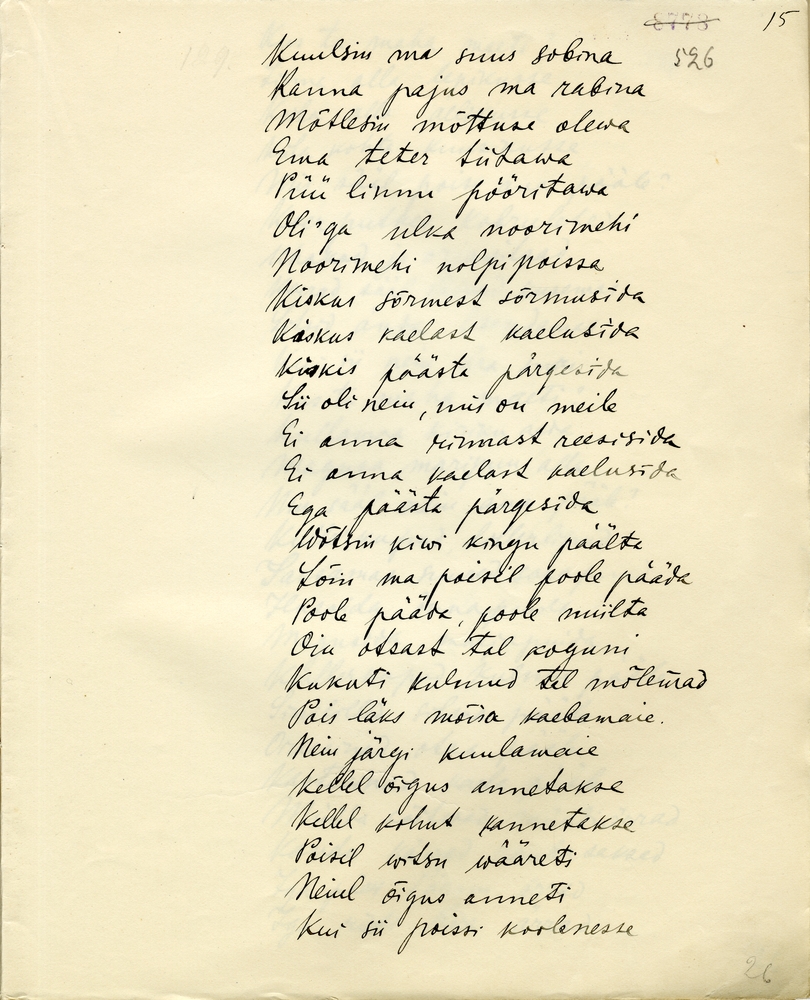 15
526
Kuulsin ma suus sobina
Kanna pajus ma rabina
Mõtlesin mõttuse olewa
Ema teter tütawa
Püü linnu pööritawa
Oli'ga ulka noorimehi
Noorimehi nolpipoissa
Kiskus sõrmest sõrmusida
Kiskus kaelast kaelusida
Kiskis päästa pärgesida
Sii oli nein, mis on meile
Ei anna rinnast reesisida
Ei anna kaelast kaelusida
Ega päästa pärgesida
Wõtsin kiwi kingu päälta
Lõin ma poisil poole pääda
Poole pääda, poole miilta
Oia otsast tal koguni
Kukuti kulmud tal mõlemad
Pois läks mõisa kaebamaie.
Nein järgi kuulamaie
Kellel õigus annetakse
Kellel kohut kannetakse
Poisil witsu wääreti
Neiul õigus anneti
Kui sii poissi koolenesse
26